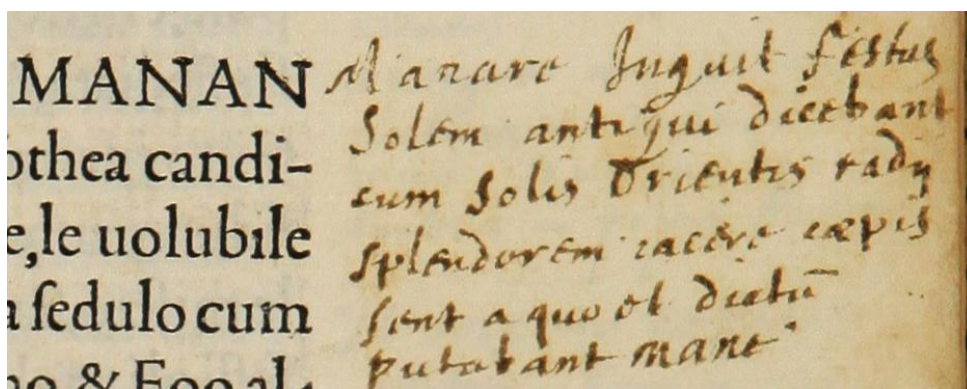 MANAN
othea candi-
e,le uolubile
a ſedulo cum
no & Eoo al-
Manare Inquit Festus
Solem antiqui dicebant
cum Solis Orientis radij
splendorem iacere cæpis
sent a quo et dictū
putabant mane